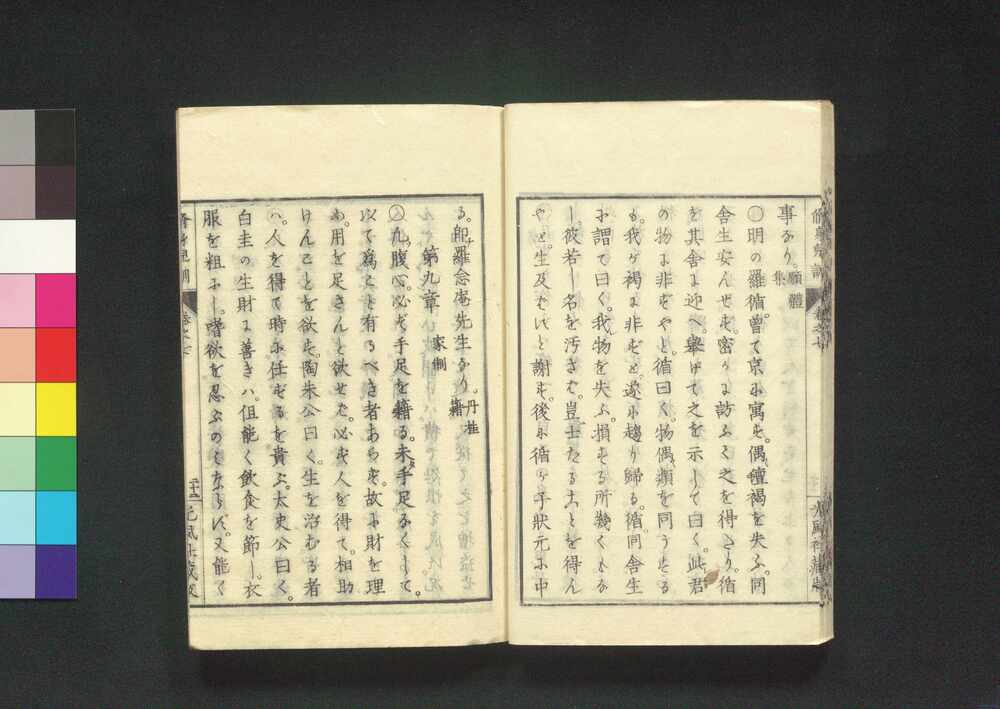 事なり。願體集
〇明の羅循曽て京に寓す。偶氊褐を失ふ。同
舎生安んぜず。密かに訪ふて之を得たり。循
を其舎に迎へ。擧げて之を示して曰く。此君
の物に非ずやと。循曰く。物偶類を同うする
も。我が褐に非ずと。遂に趨り歸る。循同舎生
に謂て曰く。我物を失ふ。損する所幾くもな
し。彼若し名を汚さば。豈士たることを得ん
やと。生及ばずと謝す。後に循が子狀元に中
る。即羅念庵先生なり。丹桂籍
第九章 家制
〇凡腹心。必ず手足を籍る。未手足なくして。
以て爲こと有るべき者あらず。故に財を理
め。用を足さんと欲せば。必ず人を得て。相助
けんことを欲す。陶朱公曰く。生を治むる者
ハ。人を得て時に任ずるを貴ぶ。太史公曰く。
白圭の生財に善きハ。伹能く飲食を節し。衣
服を粗にし。嗜欲を忍ぶのミならず。又能く